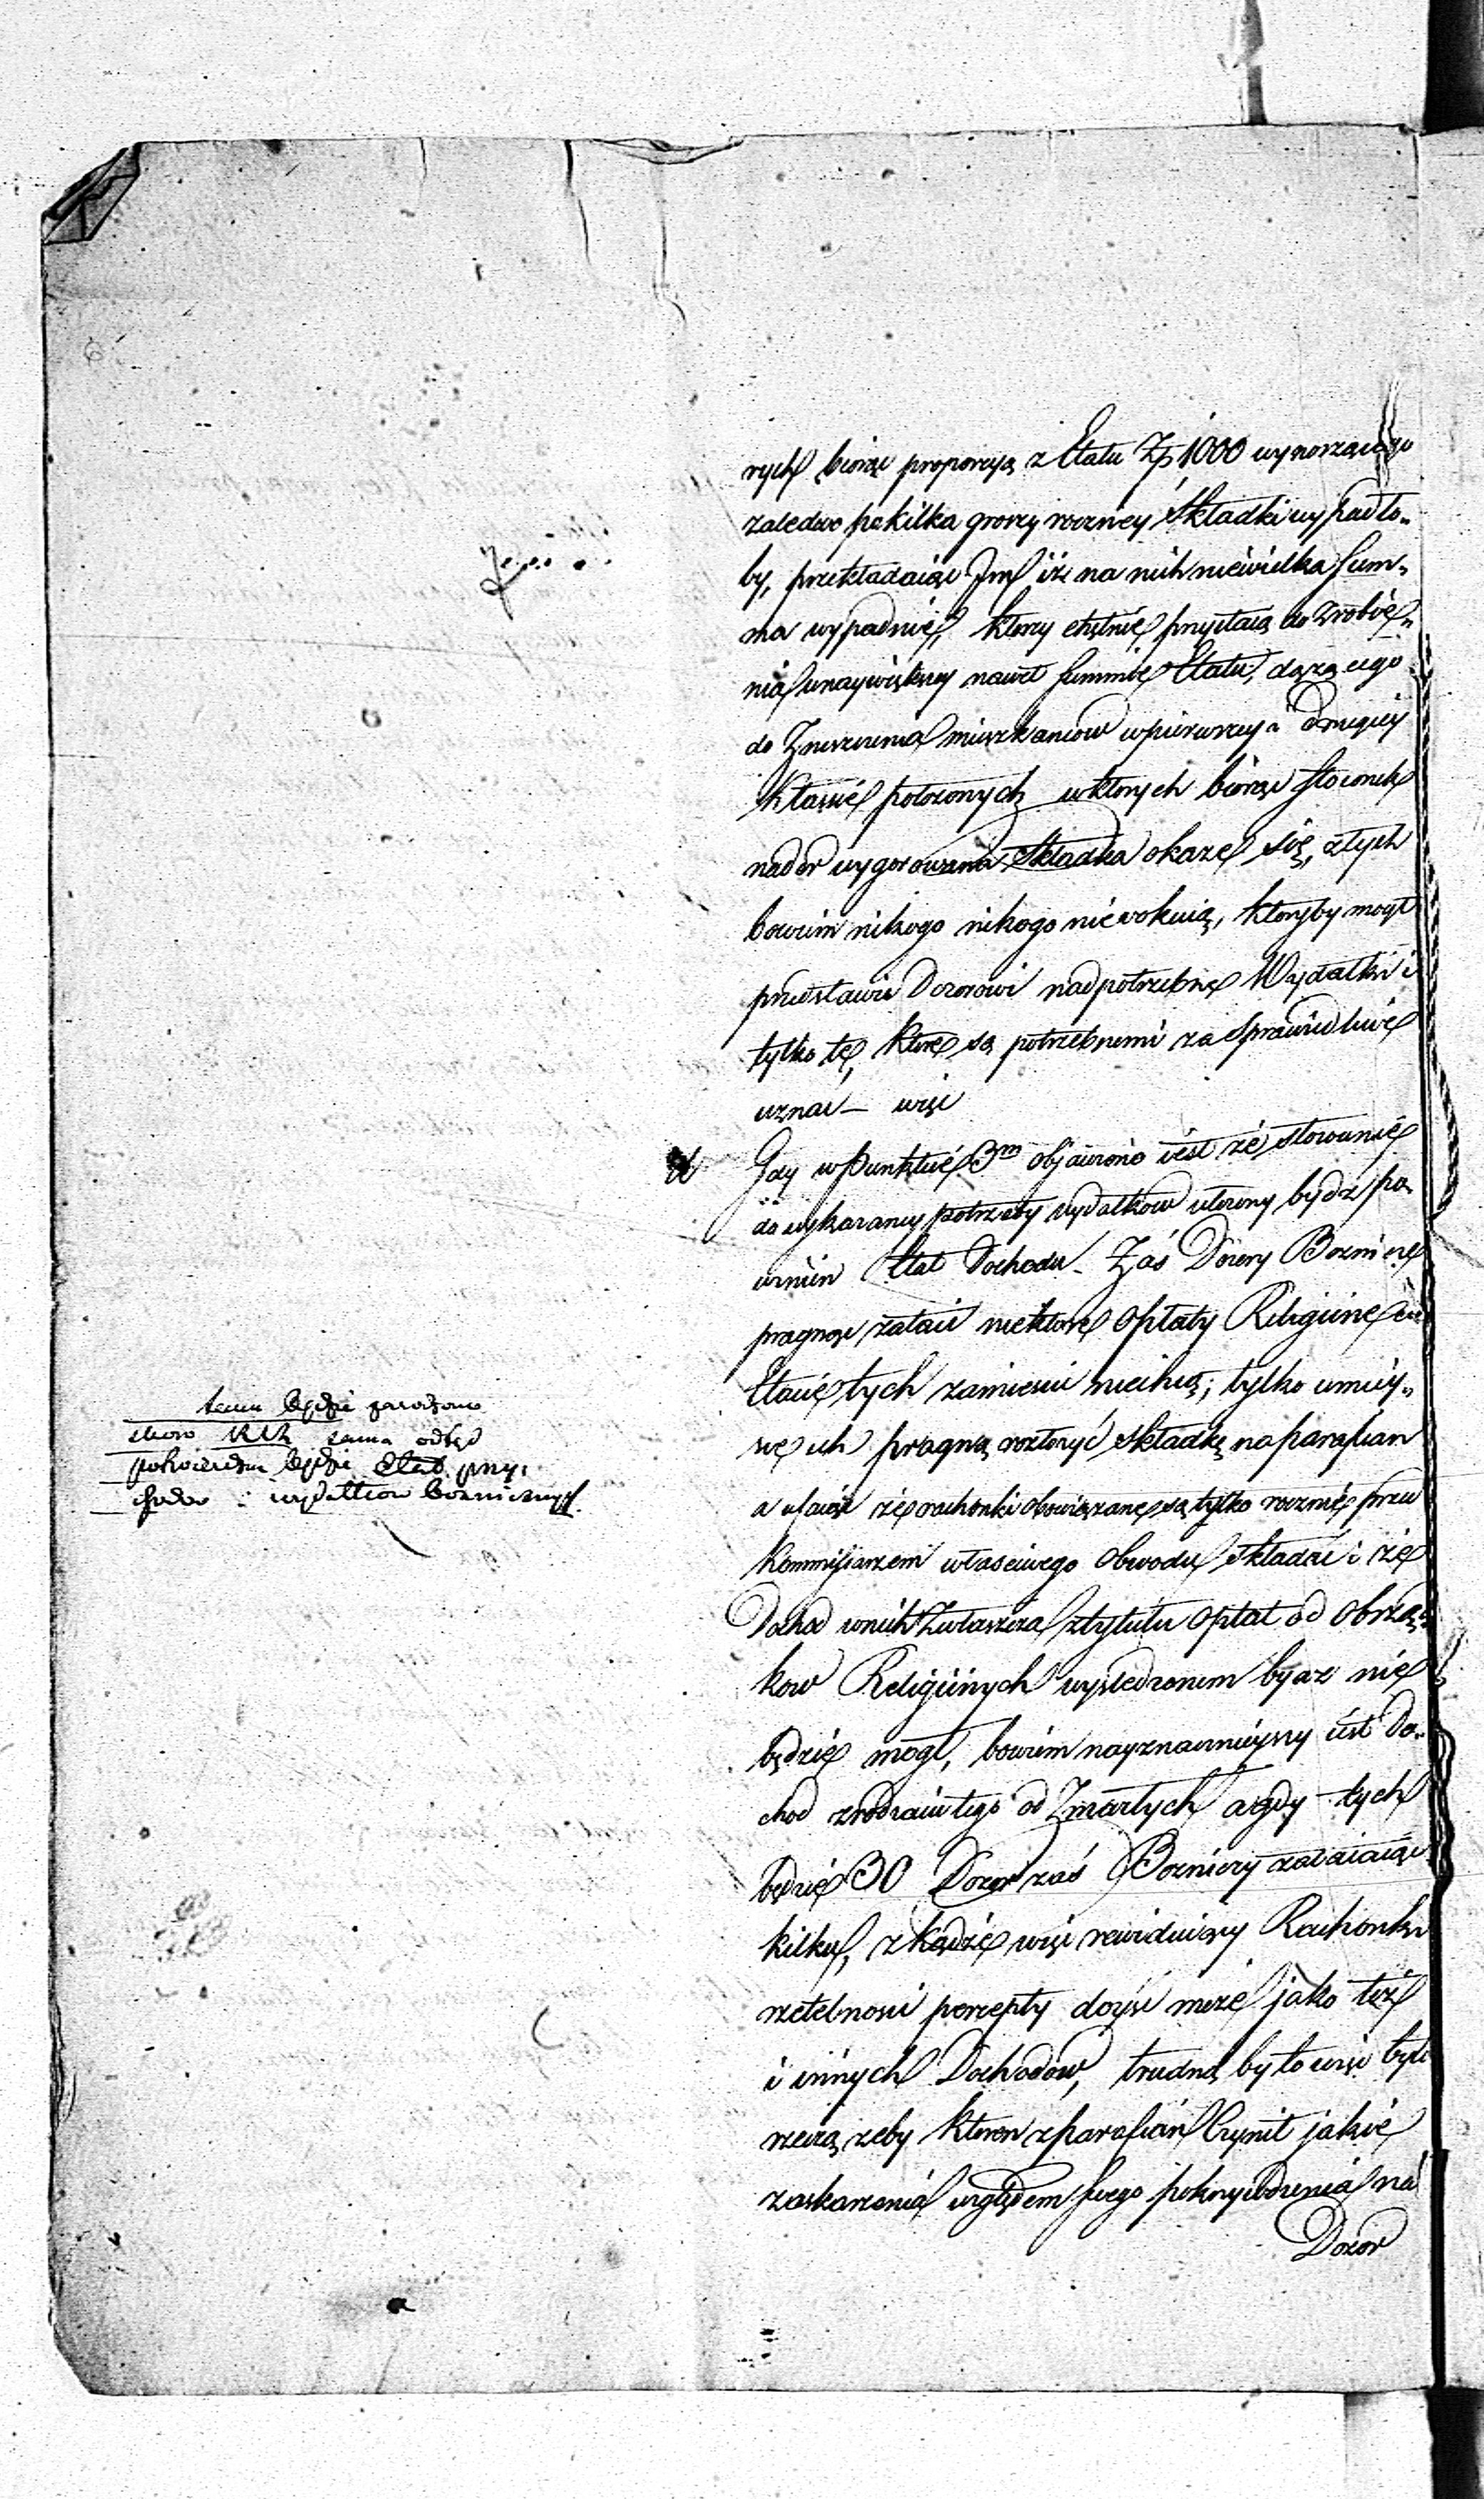 rych biorąc proporcyą z Etatu Zp 1000 wynoszącego
zaledwo po kilka groszy roczney Składki wypadło„
by, przekładaiąc Im iż na nich niewielka Sum„
ma wypadnie, ktorzy chętnie przystaią do zrobie„
nia w naywiększey nawet Summie Etatu, dążącego
do Zniszczenia mieszkancow w pierwszey a drugiey
Klassie położonych w ktorych biorąc Stosunek
nader wygorowana Składka okaże się, z tych
bowiem nikogo nikogo nie wokuią, ktoryby mogł
przedstawić Dozorowi nadpotrzebne Wydatki i
tylko te, ktore są potrzebnemi za Sprawiedliwe
uznać – więc
Gdy w Punktcie 3m objawiono iest że stosownie
do wykazaney potrzeby wydatkow ułożony bydz po„
winien Etat Dochodu – Zaś Dozory Boznicze
pragnąc zataić niektore Opłaty Religiine w
Etacie tych zamieścić niechcą; tylko umiey„
sce ich pragną rozłożyć Składkę na parafian
a ufaiąc że rachonki obowiązane są tylko rocznie przed
Kommissarzem właściwego Obwodu Składać i że
Dochod w nich Zwłaszcza z tytułu Opłat od Obrząd„
kow Religiinych wysledzonem bydz nie
będzie mogł, bowiem nayznacznieyszy iest Do„
chod z rodzaiu tego od Zmarłych a gdy tych
będzie 30 Dozor zaś Bozniczy zataiaiąc
kilku, z kądże więc rewiduiący Rachonki
rzetelnosci percepty doyść może jako też
i innych Dochodow, trudną by to więc było
rzeczą zeby ktoren z parafian Czynił jakie
zaskarzenia względem Swego pokrzywdzenia na
Dozor
temu będzie zaradzono
skoro KRz sama odtąd
potwierdzać będzie Etat przy„
chodow i wydatkow bozniczych